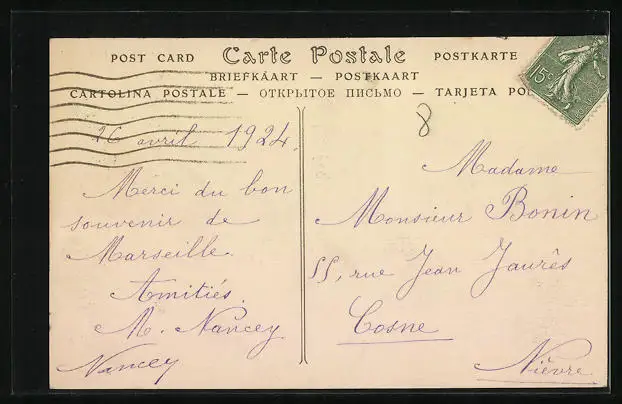 POST CARD Carte Postale POSTKARTE
BRIEFKAART — POSTKAART
CARTOLINA POSTALE — ОТКРЫТОЕ ПИСЬМО — TARJETA
15c
8
26 avril 1924.
Merci du bon
souvenir de
Marseille.
Amitiés.
M. Nancey
Nancey
Madame
Monsieur Bonin
55, rue Jean Jaurès
Cosne
Nièvre